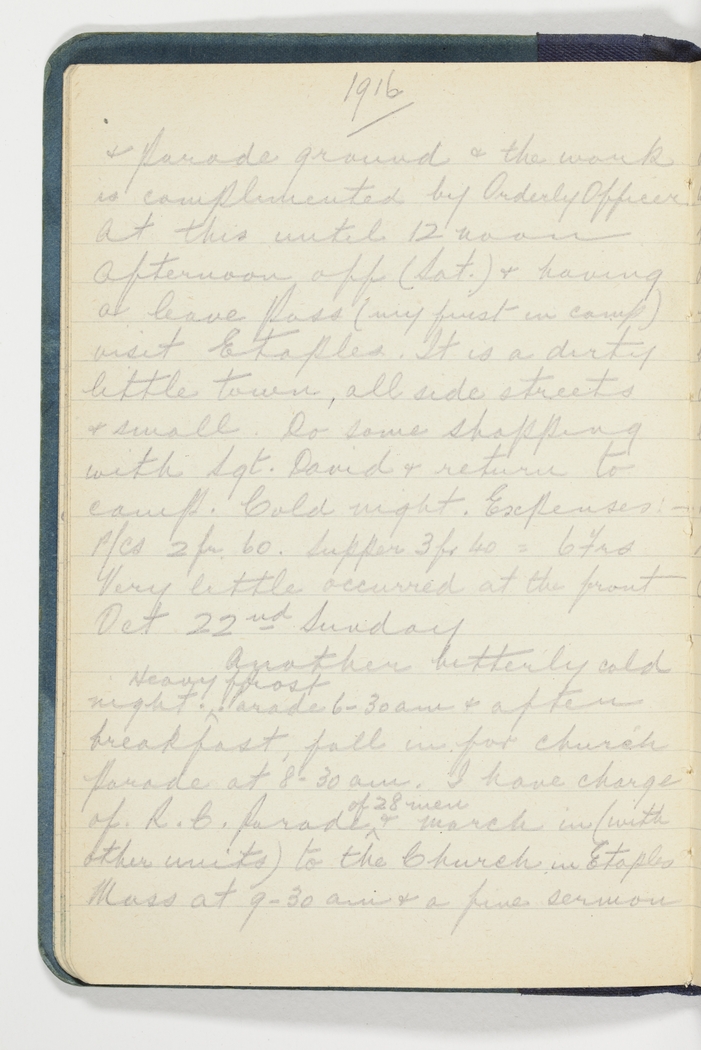 1916
& parade ground & the work
is complimented by Orderly Officer
At this until 12 noon
Afternoon off (Sat.) & having
a leave pass (my first in camp)
visit Etaples. It is a dirty
little town, all side streets
& small. Do some shopping
with Sgt. David & return to
camp. Cold night. Expenses:-
P/cs 2fr. 60. Supper 3fr 40 = 6 Frs
Very little occurred at the front
Oct 22nd Sunday
Another bitterly cold
Heavy frost
night. ^ Parade 6-30am & after
breakfast, fall in for church
parade at 8-30 am. I have charge
of 28 men
of R.C. parade ^ & march in (with
other units) to the Church in Etaples
Mass at 9-30 am & a fine sermon